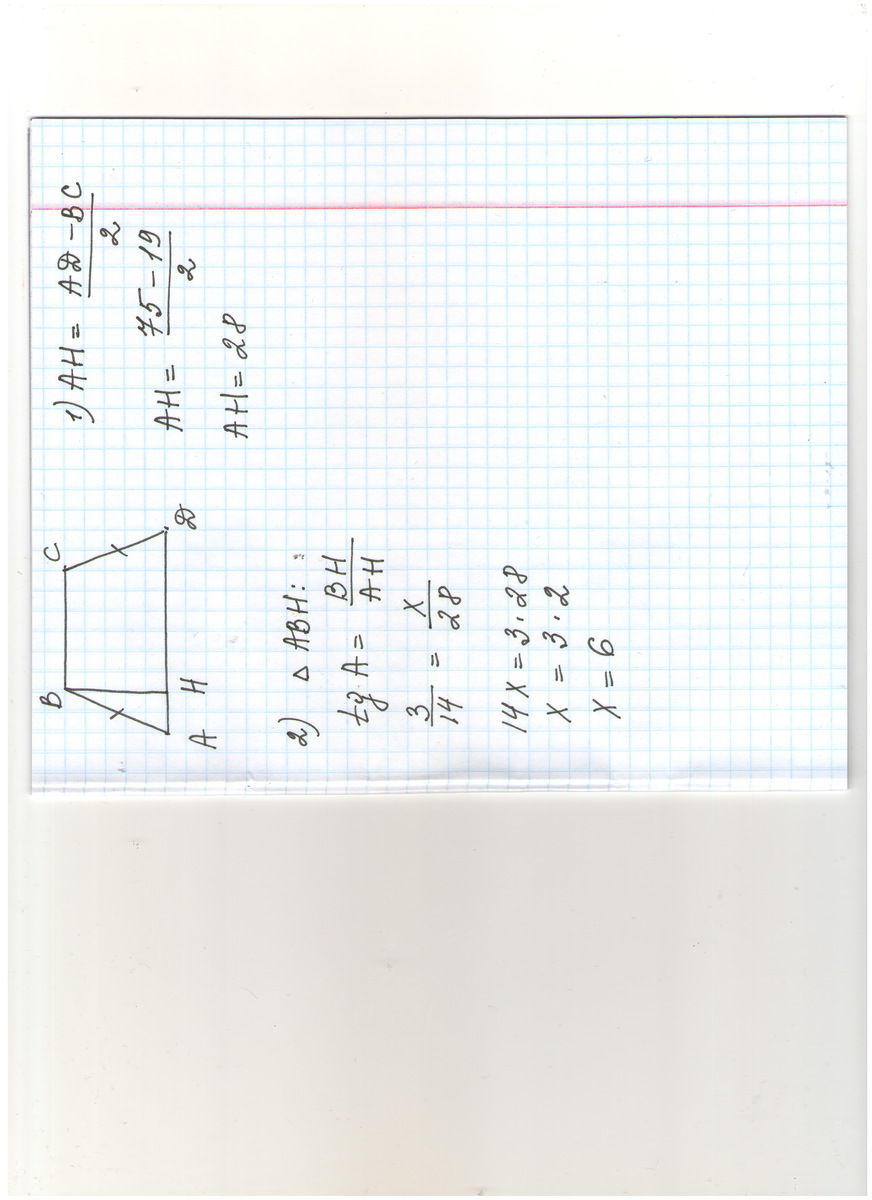 B C
A H D
1) AH = AD - BC / 2
AH = 75 - 19 / 2
AH = 28
2) △ ABH:
tg A = BH / AH
3 / 14 = x / 28
14x = 3·28
x = 3·2
x = 6